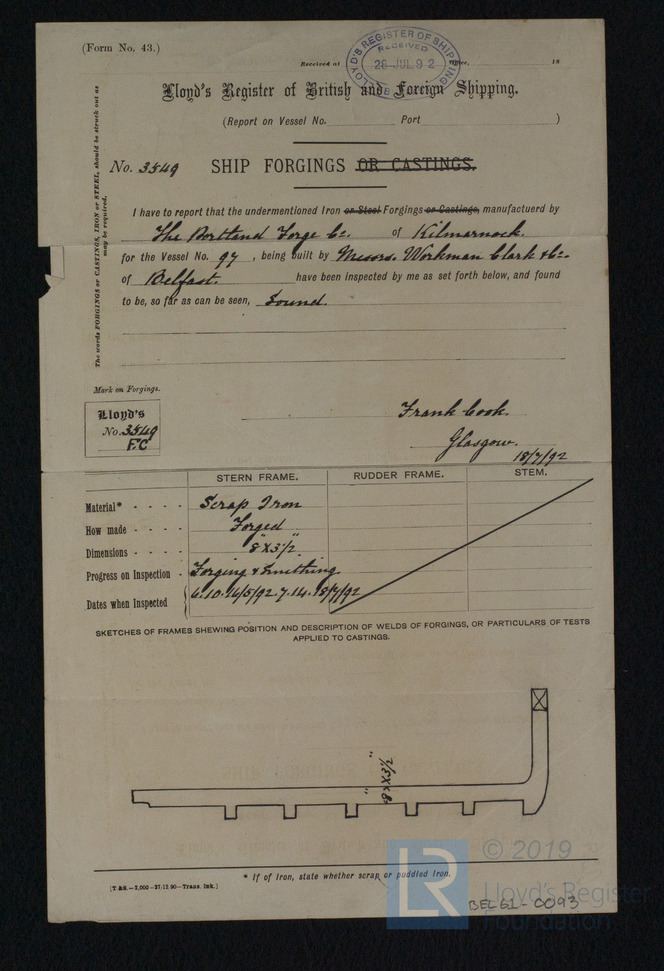 (Form No. 43.)
Received at Office, 18
LLOYD'S REGISTER OF SHIPPING
RECEIVED
28 JUL 92
Lloyd's Register of British and Foreign Shipping.
(Report on Vessel No. Port )
No. 3549 SHIP FORGINGS OR CASTINGS.
The words FORGINGS or CASTINGS, IRON or STEEL, should be struck out as may be required.
I have to report that the undermentioned Iron or Steel Forgings or Castings, manufactuerd by
The Portland Forge Co. of Kilmarnock.
for the Vessel No. 97, being built by Messrs. Workman Clark & Co.
of Belfast. have been inspected by me as set forth below, and found
to be, so far as can be seen, Sound.
Mark on Forgings.
Lloyd's
No. 3549
F.C
Frank Cook.
Glasgow.
18/7/92
STERN FRAME. RUDDER FRAME. STEM.
Material* - - - - Scrap Iron
How made - - - - Forged
Dimensions - - - - 8" X 3½"
Progress on Inspection - Forging & Smithing
Dates when Inspected 6.10.16/5/92.7.14.18/7/92
SKETCHES OF FRAMES SHEWING POSITION AND DESCRIPTION OF WELDS OF FORGINGS, OR PARTICULARS OF TESTS
APPLIED TO CASTINGS.
8" X 3½"
* If of Iron, state whether scrap or puddled Iron.
[T & S.—2,000—27.12.90—Trans. Ink.]
BEL61-0093
LR © 2019
Lloyd's Register
Foundation